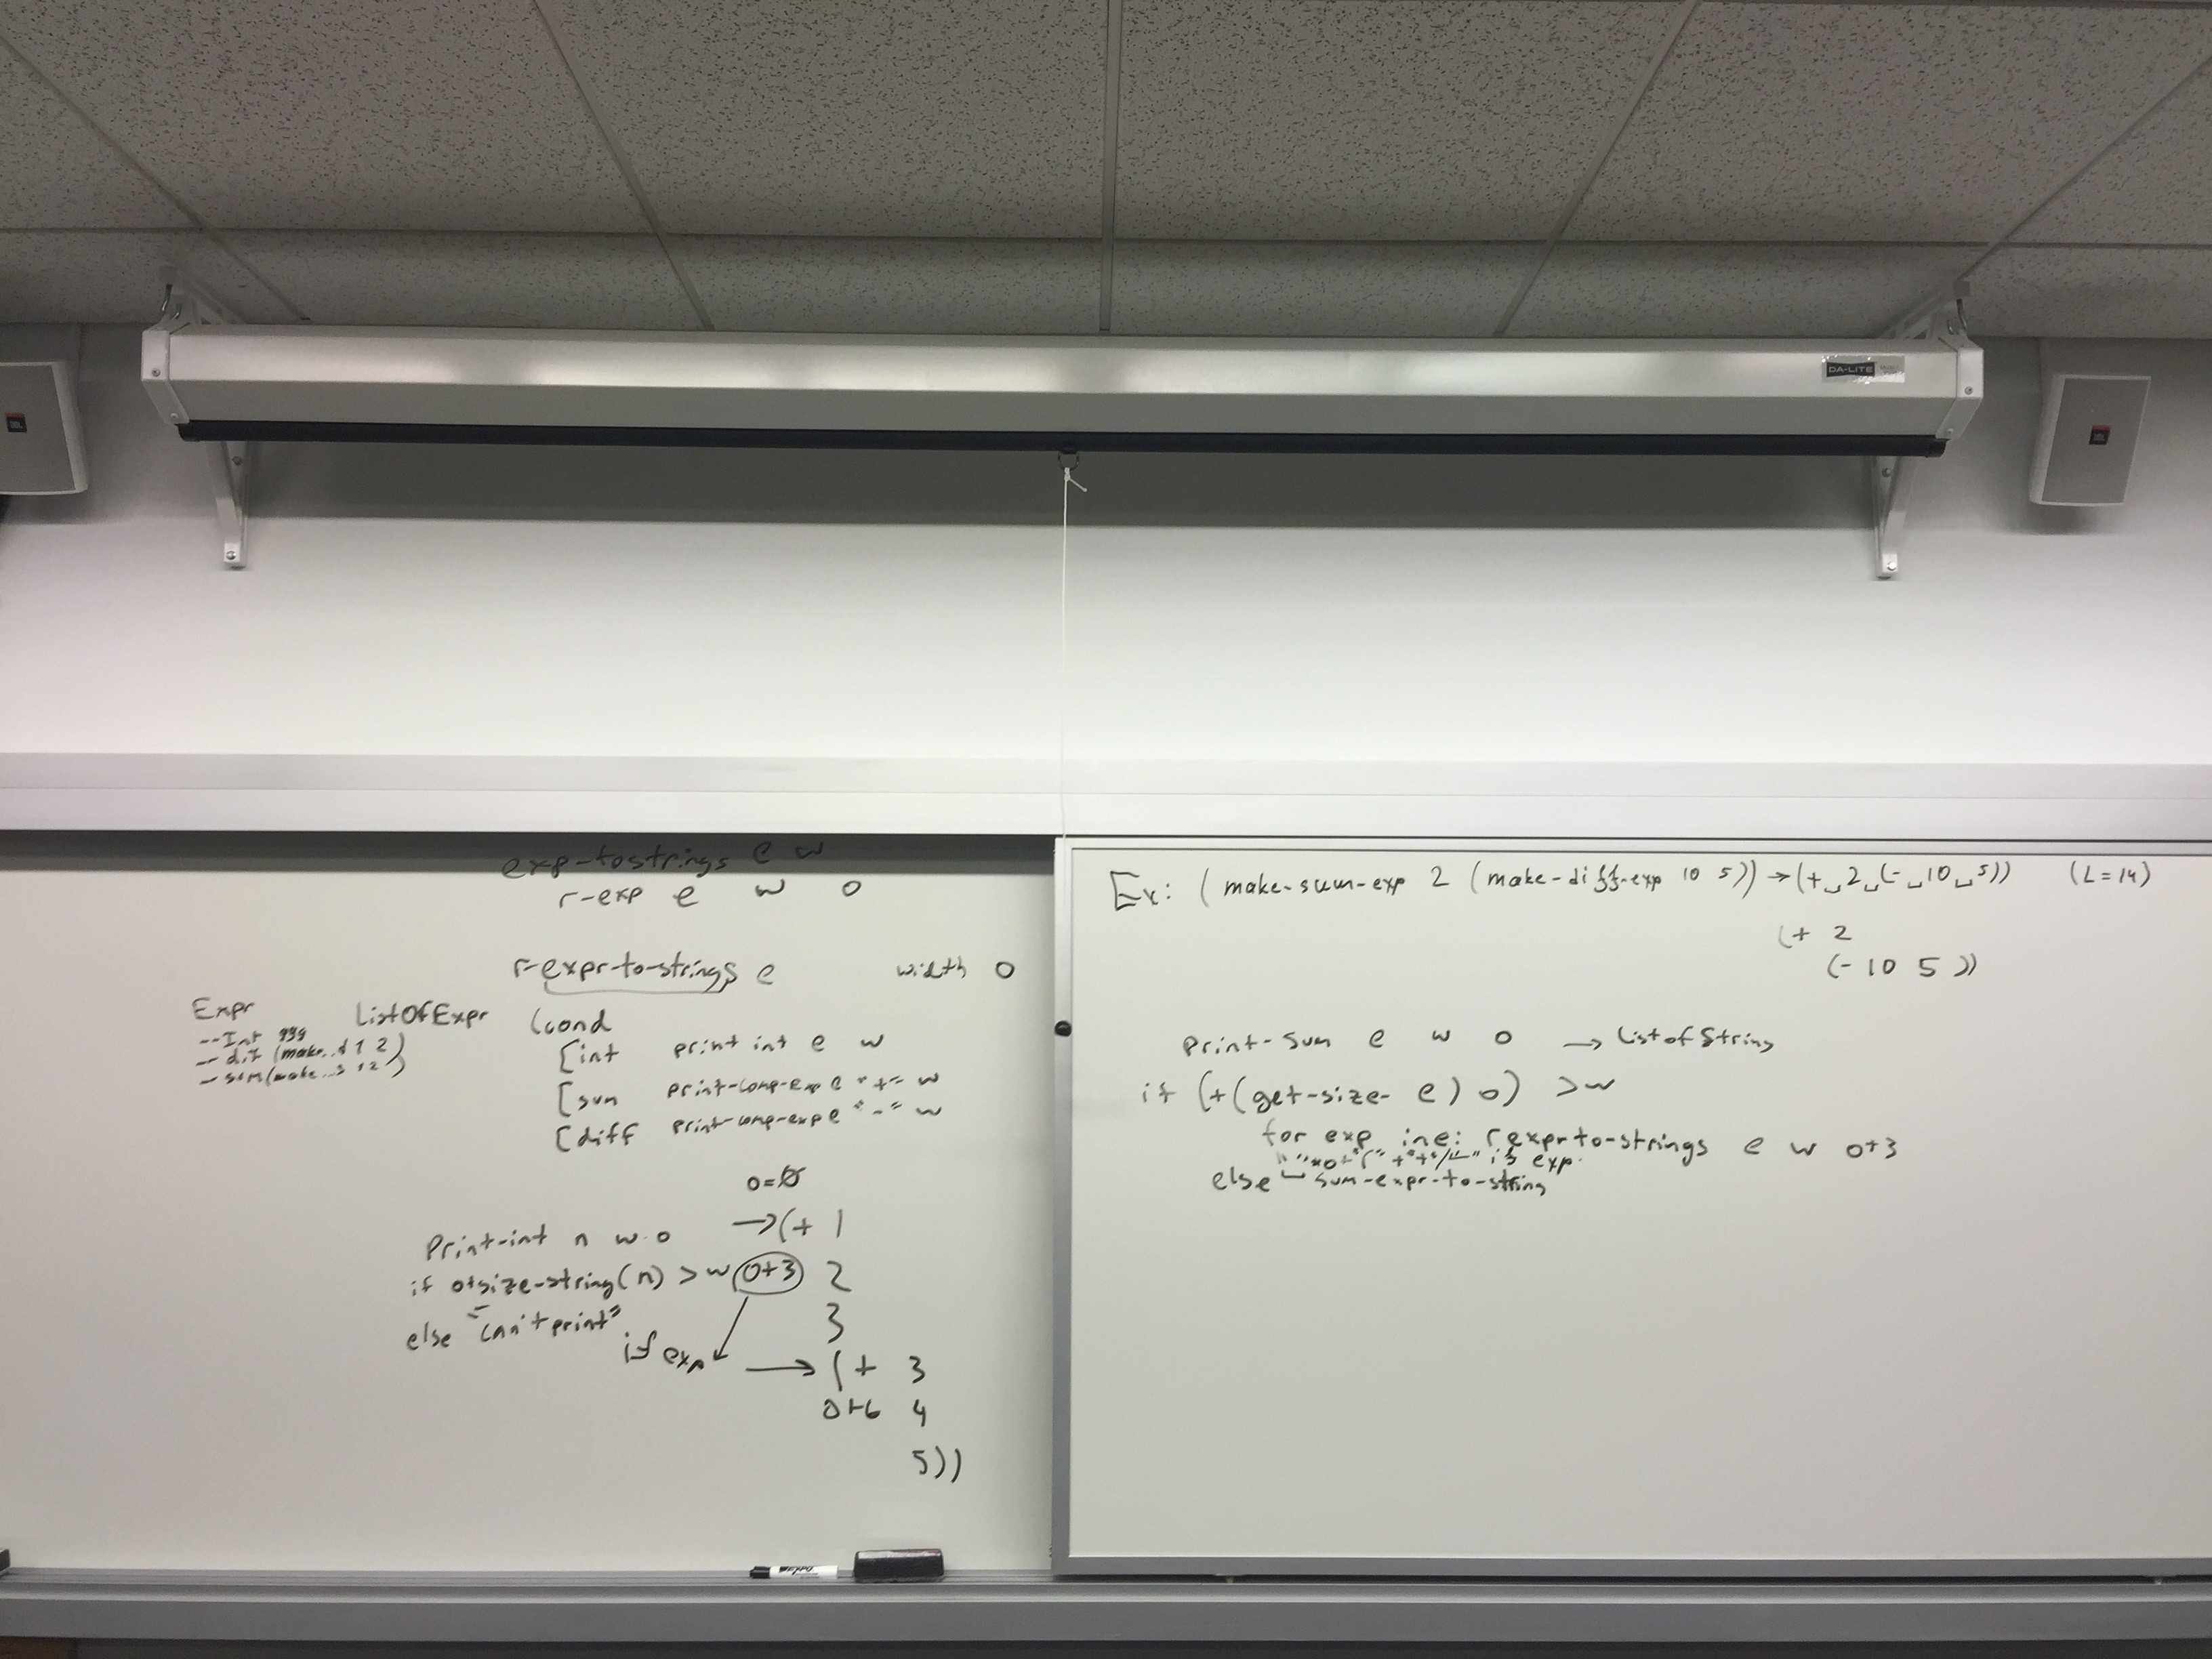 DA-LITE
JBL
JBL
exp-tostrings e w
r-exp e w o
r-expr-to-strings e width o
Expr ListOfExpr (cond
--Int 999
-- dif (make..d 1 2)
-- sum (make..s 1 2)
[int print int e w
[sum print-comp-exp e "+" w
[diff print-comp-exp e "-" w
o=0
Print-int n w o
if o+size-string(n) > w
else "can't print"
→(+ 1
o+3 2
3
if exp → (+ 3
o+6 4
5))
expo
Ex: (make-sum-exp 2 (make-diff-exp 10 5)) → (+␣2␣(-␣10␣5)) (L=14)
(+ 2
(- 10 5 ))
Print-sum e w o → ListofString
if (+(get-size- e) o) >w
for exp in e: r expr-to-strings e w o+3
if exp.
else sum-expr-to-string